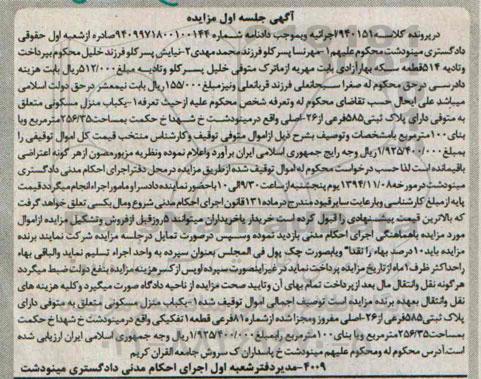 آگهی جلسه اول مزایده
درپرونده کلاسه ۹۴۰۱۵۱ اجرائیه وبموجب دادنامه شماره ۹۴۰۹۹۷۱۸۰۰۱۰۰۱۴۴ صادره ازشعبه اول حقوقی
دادگستری مینودشت محکوم علیهم ۱-مهرنسا پسرکلو فرزند محمدمهدی ۲-نیایش پسرکلو فرزند خلیل محکوم بپرداخت
وتادیه ۵۱۴ قطعه سکه بهار آزادی بابت مهریه ازماترک متوفی خلیل پسرکلو وتادیه مبلغ ۵۱۲/۰۰۰ ریال بابت هزینه
دادرسی درحق محکوم له صغرا سبحانعلی فرزند قربانعلی ونیزمبلغ ۱۵۵/۰۰۰ ریال بابت نیمعشر درحق دولت اسلامی
میباشد علی ایحال حسب تقاضای محکوم له وتعرفه شخص محکوم علیه ازحیث تعرفه ۱-یکباب منزل مسکونی متعلق
به متوفی دارای پلاک ثبتی ۵۸۵ فرعی از ۲۶-اصلی واقع درمینودشت خ شهدا خ حکمت بمساحت ۲۵۶/۳۵ مترمربع وبا
بنای ۱۰۰ مترمربع بامشخصات وتوصیف بشرح ذیل ازاموال متوفی توقیف وکارشناس منتخب قیمت کل اموال توقیفی را
بمبلغ ۱/۹۲۵/۴۰۰/۰۰۰ ریال وجه رایج جمهوری اسلامی ایران برآورد واعلام نموده ونظریه مزبور مصون ازهر گونه اعتراضی
باقیمانده است لذا حسب درخواست محکوم له اموال توقیف شده ازطریق مزایده درمحل دفتراجرای احکام مدنی دادگستری
مینودشت درمورخه ۱۳۹۴/۱۱/۰۸ یوم پنجشنبه ازساعت ۹/۳۰ الی ۱۰ باحضور نماینده دادسرا و مامور اجراء انجام میگردد قیمت
پایه ازمبلغ کارشناسی وبارعایت سایر قیود مندرج درماده ۱۳۱ قانون اجرای احکام مدنی شروع ومال بکسی تعلق خواهد گرفت
که بالاترین قیمت پیشنهادی را قبول کرده است خریدار یاخریداران میتوانند ۵ روزقبل ازفروش وتشکیل مزایده ازاموال
مورد مزایده باهماهنگی اجرای احکام مدنی بازدید نموده وسپس درصورت تمایل درجلسه مزایده شرکت نمایند برنده
مزایده باید ۱۰ درصد بهاء را نقدا" وبابصورت چک پول فی المجلس بعنوان سپرده به واحد اجراء تسلیم نماید والباقی بهاء
راحداکثر ظرف ۱ ماه ازتاریخ مزایده پرداخت نماید درغیراینصورت سپرده اوپس ازکسرهزینه مزایده بنفع دولت ضبط میگردد
هرگونه نقل وانتقال مال بعد ازپرداخت تمام بهای آن وتایید صحت مزایده از ناحیه دادگاه صورت میگیرد وکلیه هزینه های
نقل وانتقال بعهده برنده مزایده است توصیف اجمالی اموال توقیف شده ۱-یکباب منزل مسکونی متعلق به متوفی دارای
پلاک ثبتی ۵۸۵ فرعی از ۲۶-اصلی مفروز ومجزا شده از شماره ۸۱ فرعی قطعه ۱ تفکیکی واقع درمینودشت خ شهدا خ حکمت
بمساحت ۲۵۶/۳۵ مترمربع وبا بنای ۱۰۰ مترمربع رابمبلغ ۱/۹۲۵/۴۰۰/۰۰۰ ریال وجه جمهوری اسلامی ایران ارزیابی شده
است آدرس محکوم له ومحکوم علیهم مینودشت خ پاسداران ک سروش جامعه القرآن کریم
۴۰۰۹-مدیردفترشعبه اول اجرای احکام مدنی دادگستری مینودشت